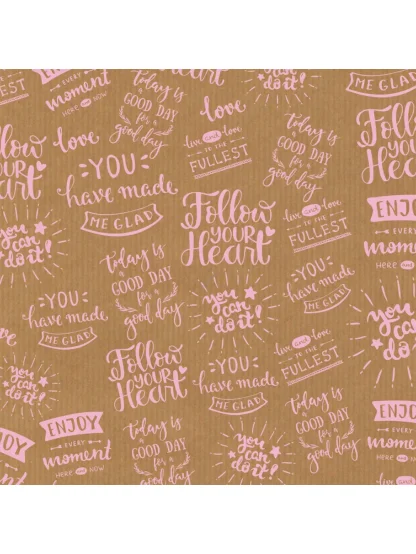 EVERY
moment
HERE AND NOW
today is
a
GOOD DAY
for a
good day
love
you
can
do it!
YOU
have made
ME GLAD
Follow
YOUR
Heart
love
YOU
have made
ME GLAD
live and love
TO THE
FULLEST
today is
a
GOOD DAY
for a
good day
Follow
YOUR
Heart
Follow
YOUR
Heart
live and love
TO THE
FULLEST
ENJOY
EVERY
moment
HERE AND
you
can
do it!
today is
a
GOOD DAY
for a
good day
YOU
have made
ME GLAD
you
can
do it!
you
can
do it!
live and love
TO THE
FULLEST
you
can
do it!
Follow
YOUR
Heart
YOU
have made
ME GLAD
ENJOY
EVERY
moment
HERE AND NOW
today is
a
GOOD DAY
for a
good day
you
can
do it!
today is
a
GOOD DAY
for a
good day
ENJOY
EVERY
moment
HERE AND